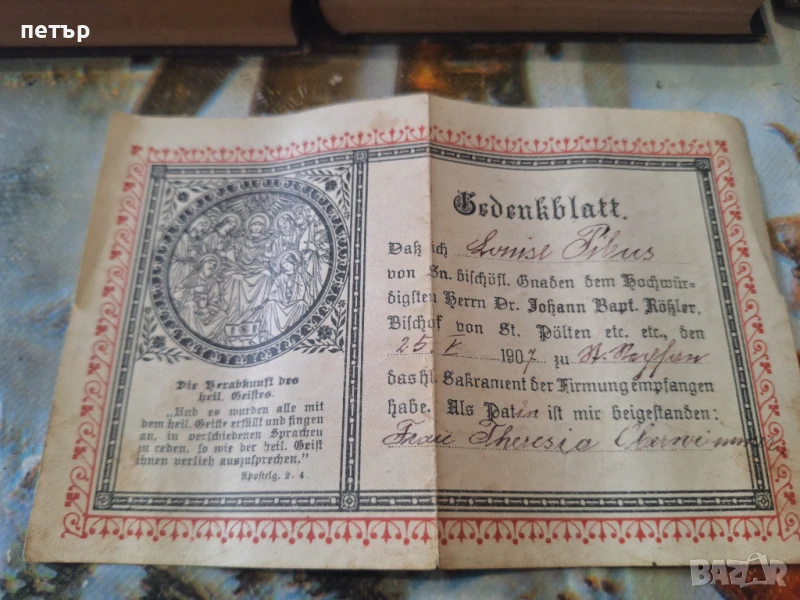 петър
Gedenkblatt.
Daß ich Louise
von Sn. bischöfl. Gnaden dem Hochwür-
digsten Herrn Dr. Johann Bapt. Rößler,
Bischof von St. Pölten etc. etc., den
25. V. 1907 zu St.
das hl. Sakrament der Firmung empfangen
habe. Als Patin ist mir beigestanden:
Frau Theresia Oberwimmer
Die Herabkunft des
heil. Geistes.
„Und es wurden alle mit
dem heil. Geiste erfüllt und fingen
an, in verschiedenen Sprachen
zu reden, so wie der heil. Geist
ihnen verlieh auszusprechen."
Apostelg. 2. 4.
BAZAR